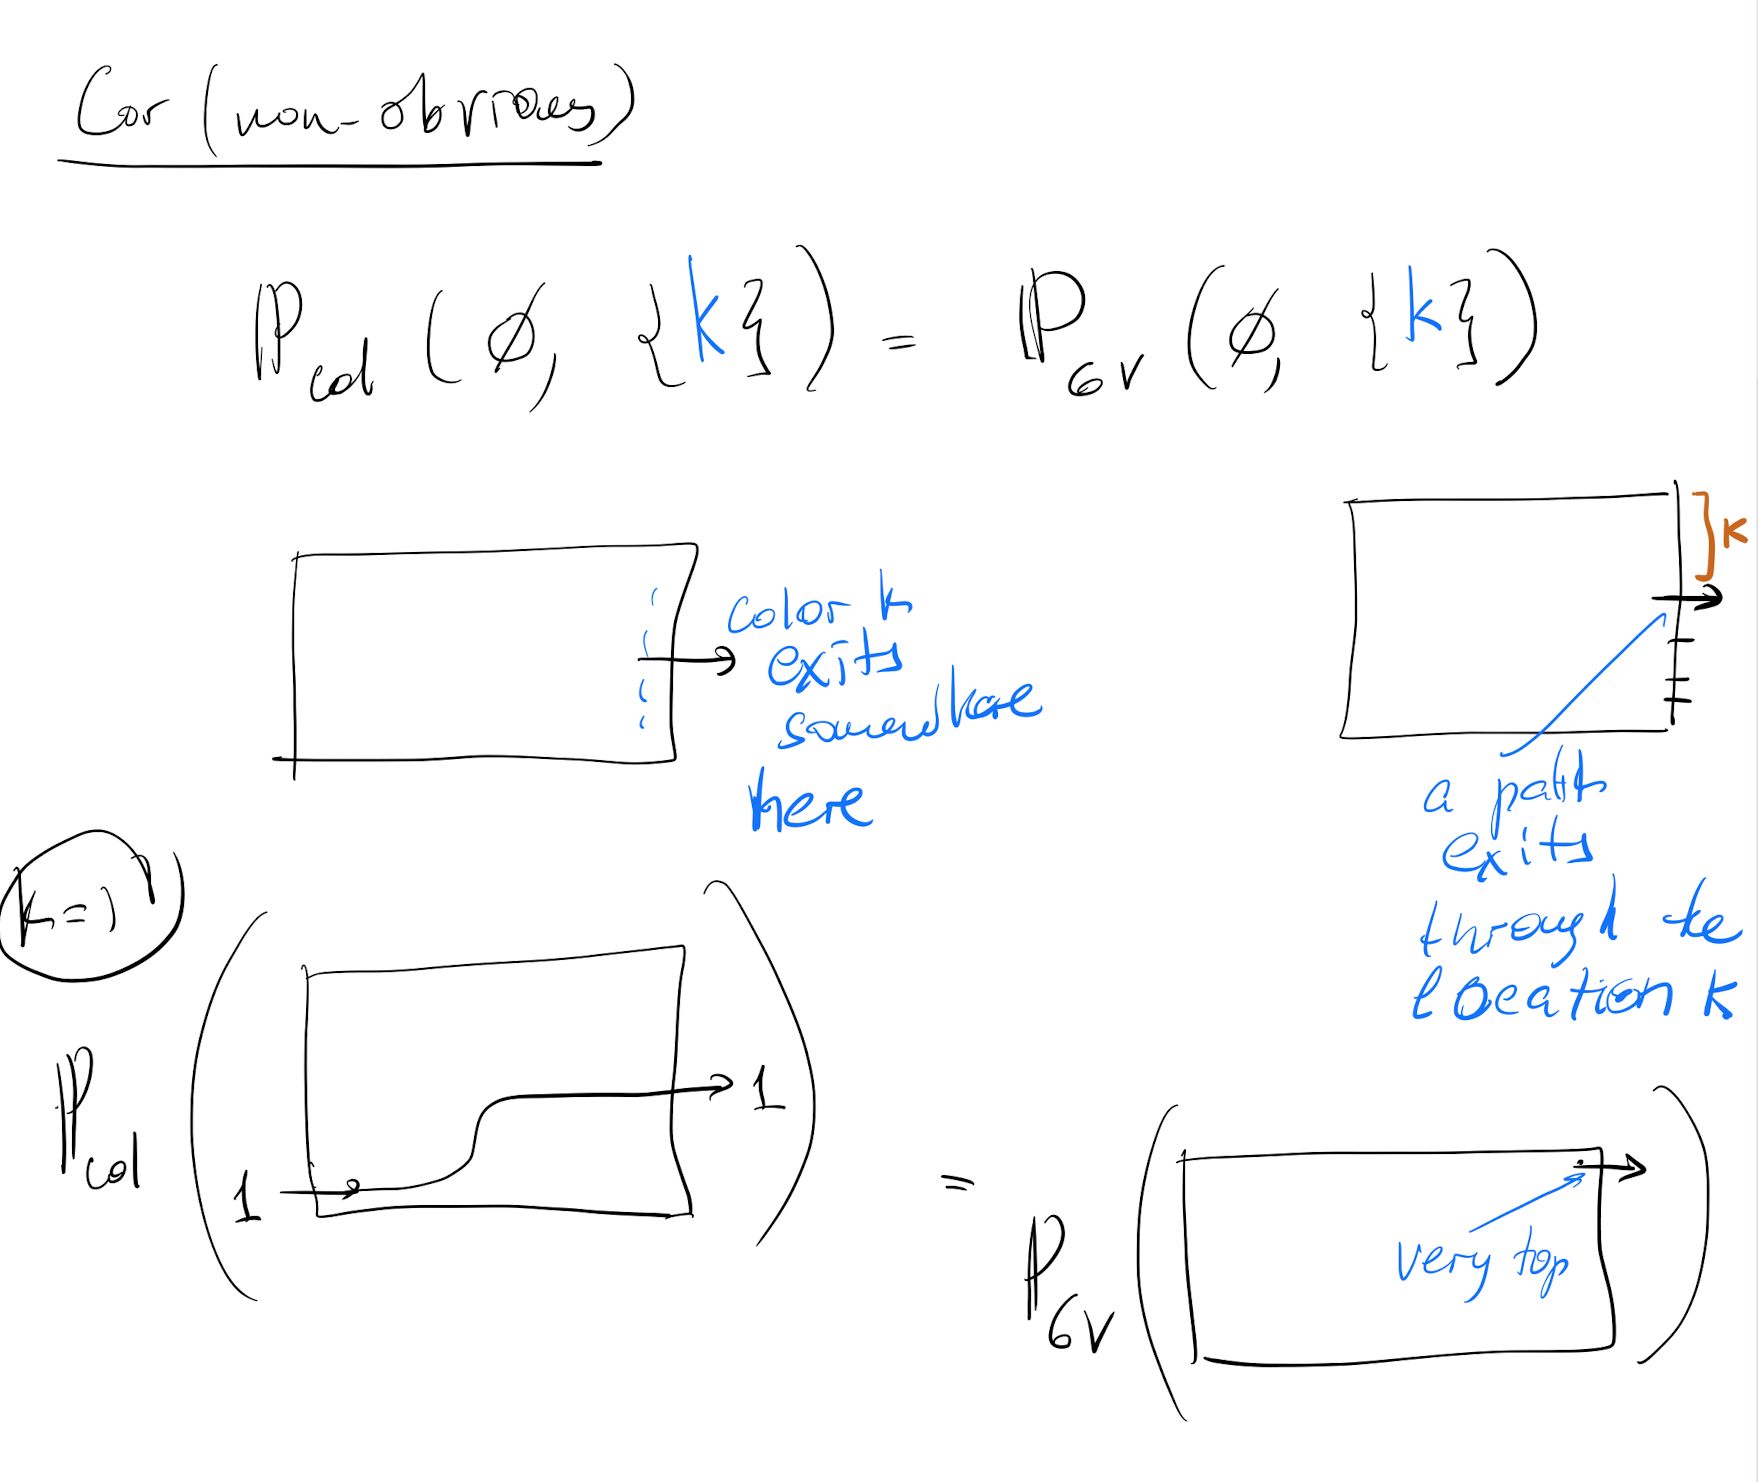 Cor (non-obvious)
P_col (ø, {k}) = P_6v (ø, {k})
color k
exits
somewhere
here
k
a path
exits
through the
location k
k=1
P_col ( 1 1 ) = P_6v ( very top )